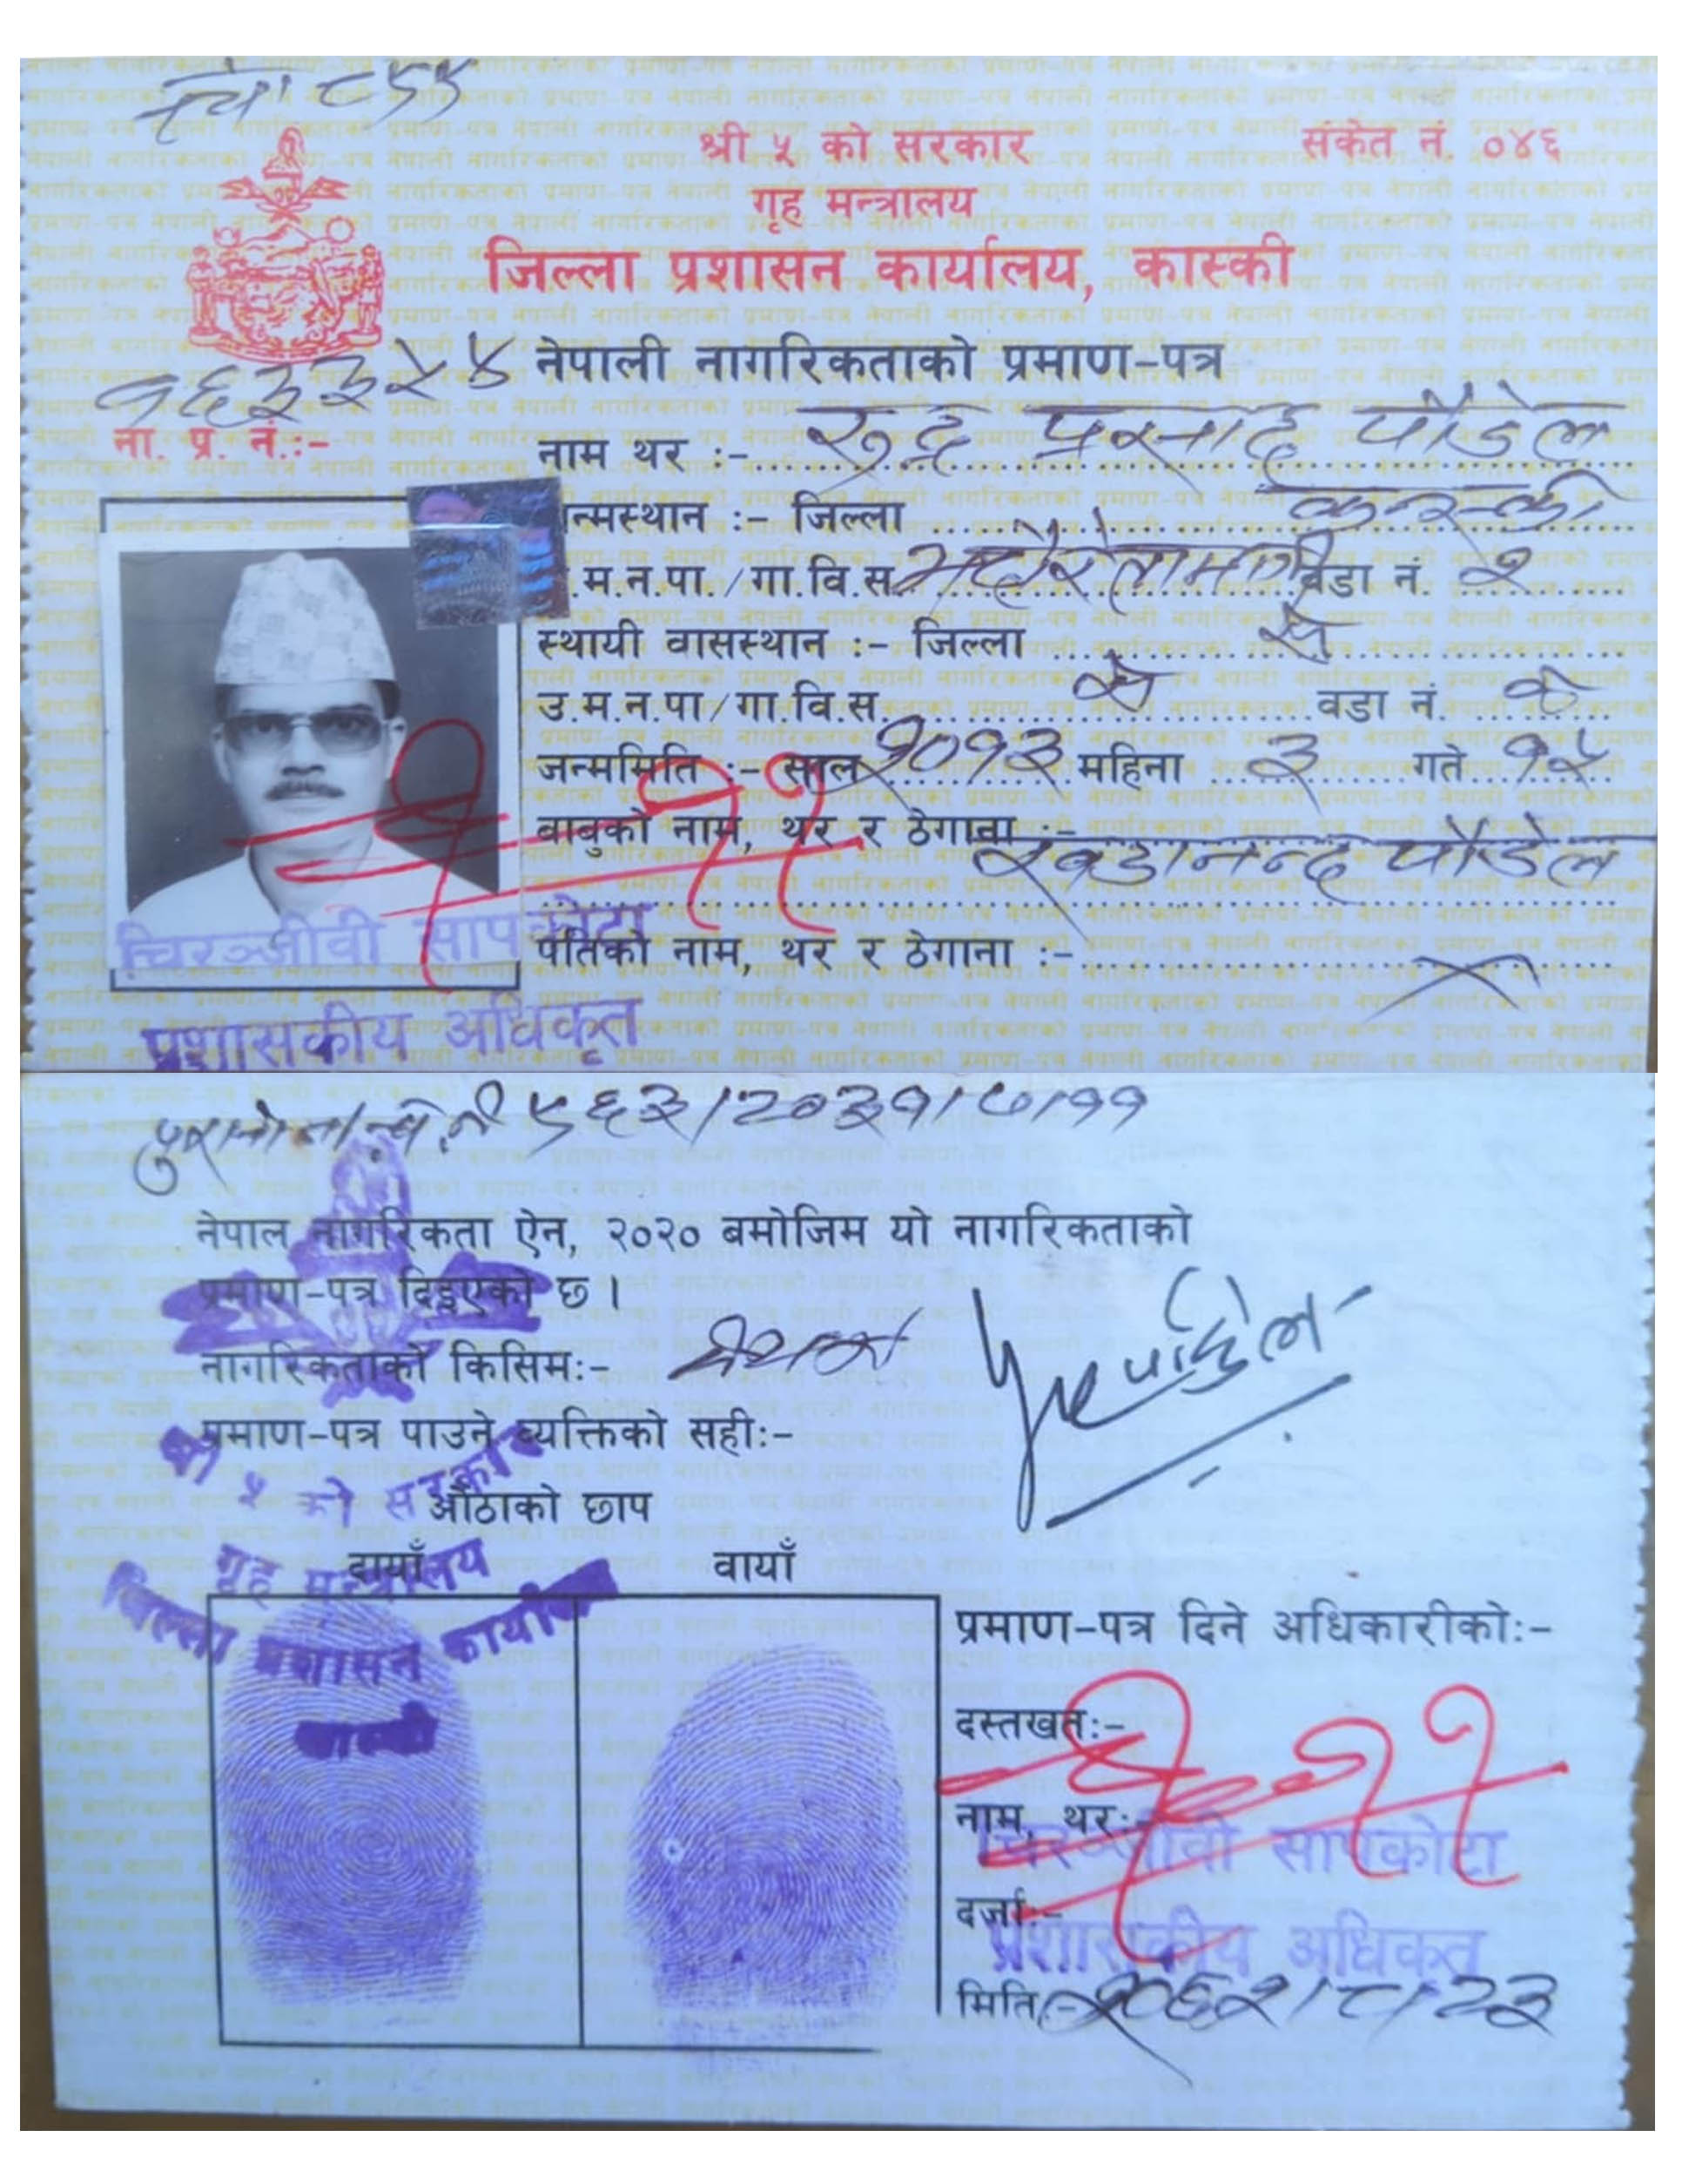 श्री ५ को सरकार
संकेत नं. ०४६
गृह मन्त्रालय
जिल्ला प्रशासन कार्यालय, कास्की
नेपाली नागरिकताको प्रमाण-पत्र
ना. प्र. नं.:-
नाम थर :- रुद्र प्रसाद पौडेल
जन्मस्थान :- जिल्ला कास्की
.म.न.पा./गा.वि.स. वडा नं. २
स्थायी वासस्थान :- जिल्ला ऐ
उ.म.न.पा/गा.वि.स. ऐ वडा नं. ऐ
जन्ममिति :- साल २०१३ महिना ३ गते १५
बाबुको नाम, थर र ठेगाना :-
खडानन्द पौडेल
पतिको नाम, थर र ठेगाना :- ×
चिरञ्जीवी सापकोटा
प्रशासकीय अधिकृत
५६३/२०३१/७/११
नेपाल नागरिकता ऐन, २०२० बमोजिम यो नागरिकताको
प्रमाण-पत्र दिइएको छ ।
नागरिकताको किसिम:-
प्रमाण-पत्र पाउने व्यक्तिको सही:-
श्री ५ को सरकार
औंठाको छाप
गृह मन्त्रालय
दायाँ वायाँ
जिल्ला प्रशासन कार्यालय
कास्की
प्रमाण-पत्र दिने अधिकारीको:-
दस्तखत:-
नाम, थर:- चिरञ्जीवी सापकोटा
दर्जा:- प्रशासकीय अधिकृत
मिति:- २०६१/८/२३